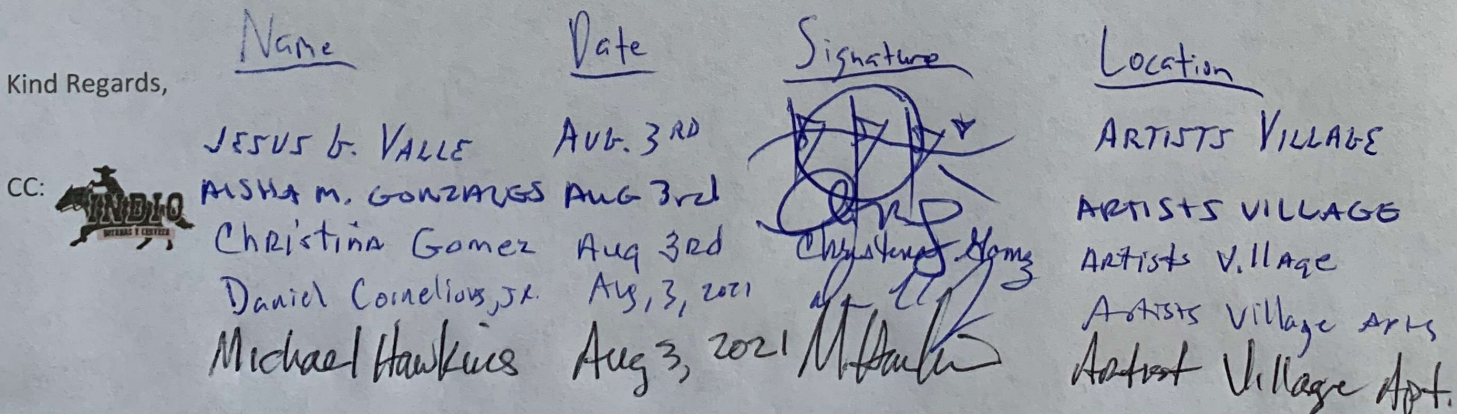 Name Date Signature Location
Kind Regards,
JESUS G. VALLE AUG. 3RD ARTISTS VILLAGE
CC: INDIO BOTANAS Y CERVEZA AISHA M. GONZALES AUG 3rd ARTISTS VILLAGE
Christina Gomez Aug 3rd Christina Gomez Artists Village
Daniel Cornelious, JR. Aug, 3, 2021 Artists Village Apts
Michael Hawkins Aug 3, 2021 M Hawkins Artist Village Apt.